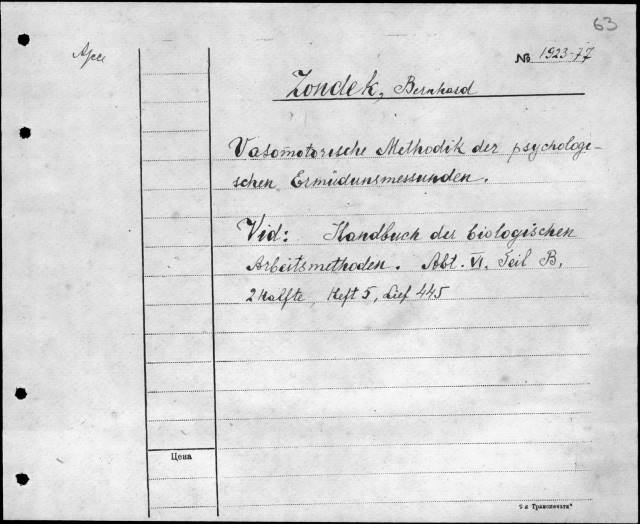 63
№ 1923-77
Zondek, Bernhard
Vasomotorische Methodik der psychologi-
schen Ermüdunsmessunden.
Vid: Handbuch der biologischen
Arbeitsmethoden. Abt. VI. Teil B,
2 Halfte, Heft 5, Lief 445
Цена